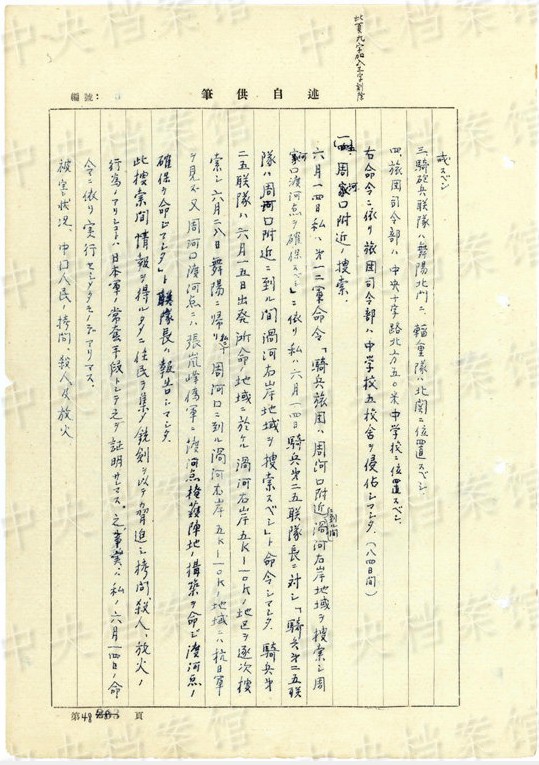 此頁九字加入三字削除
編號：
筆供自述
或スベシ
三、騎砲兵聯隊ハ舞陽北門ニ、輜重隊ハ北関ニ位置スベシ
四、旅団司令部ハ中央十字路北方五〇米中学校ニ位置スベシ、
右命令ニ依リ旅団司令部ハ中学校五校舎ヲ侵佔シマシタ（八四日間）
周家口附近ノ捜索、
六月一四日私ハ第一二軍命令「騎兵旅団ハ周河口附近ニ到ル間渦河右岸地域ヲ捜索シ周
家口渡河点ヲ確保スベシ」ニ依リ私ハ六月一四日騎兵第二五联隊長ニ対シ「騎兵第二五联
隊ハ周河口附近ニ到ル間渦河右岸地域ヲ捜索スベシ」ト命令シマシタ、騎兵第
二五联隊ハ六月一五日出発所命ノ地域ニ於ケル渦河右岸五K一一〇Kノ地区ヲ逐次捜
索シ六月二八日舞陽ニ帰リ「周河口ニ到ル渦河右岸五K一一〇Kノ地域ニハ抗日軍
ヲ見ズ又周河口渡河点ニハ張嵐峰偽軍ニ渡河点掩護陣地ノ構築ヲ命ジ渡河点ノ
確保ヲ命ジマシタ」ト联隊長ハ報告シマシタ、
此捜索間情報ヲ得ル為ニ住民ヲ集メ銃剣ヲ以テ脅迫シ拷問、殺人、放火ノ
行為ノアリシコトハ日本軍ノ常套手段トシテ之ヲ証明シマス、之ノ事実ハ私ノ六月一四日ノ命
令ニ依リ実行セシメタモノデアリマス、
被害状況、中口人民ノ拷問、殺人及放火
第48頁
中央档案馆